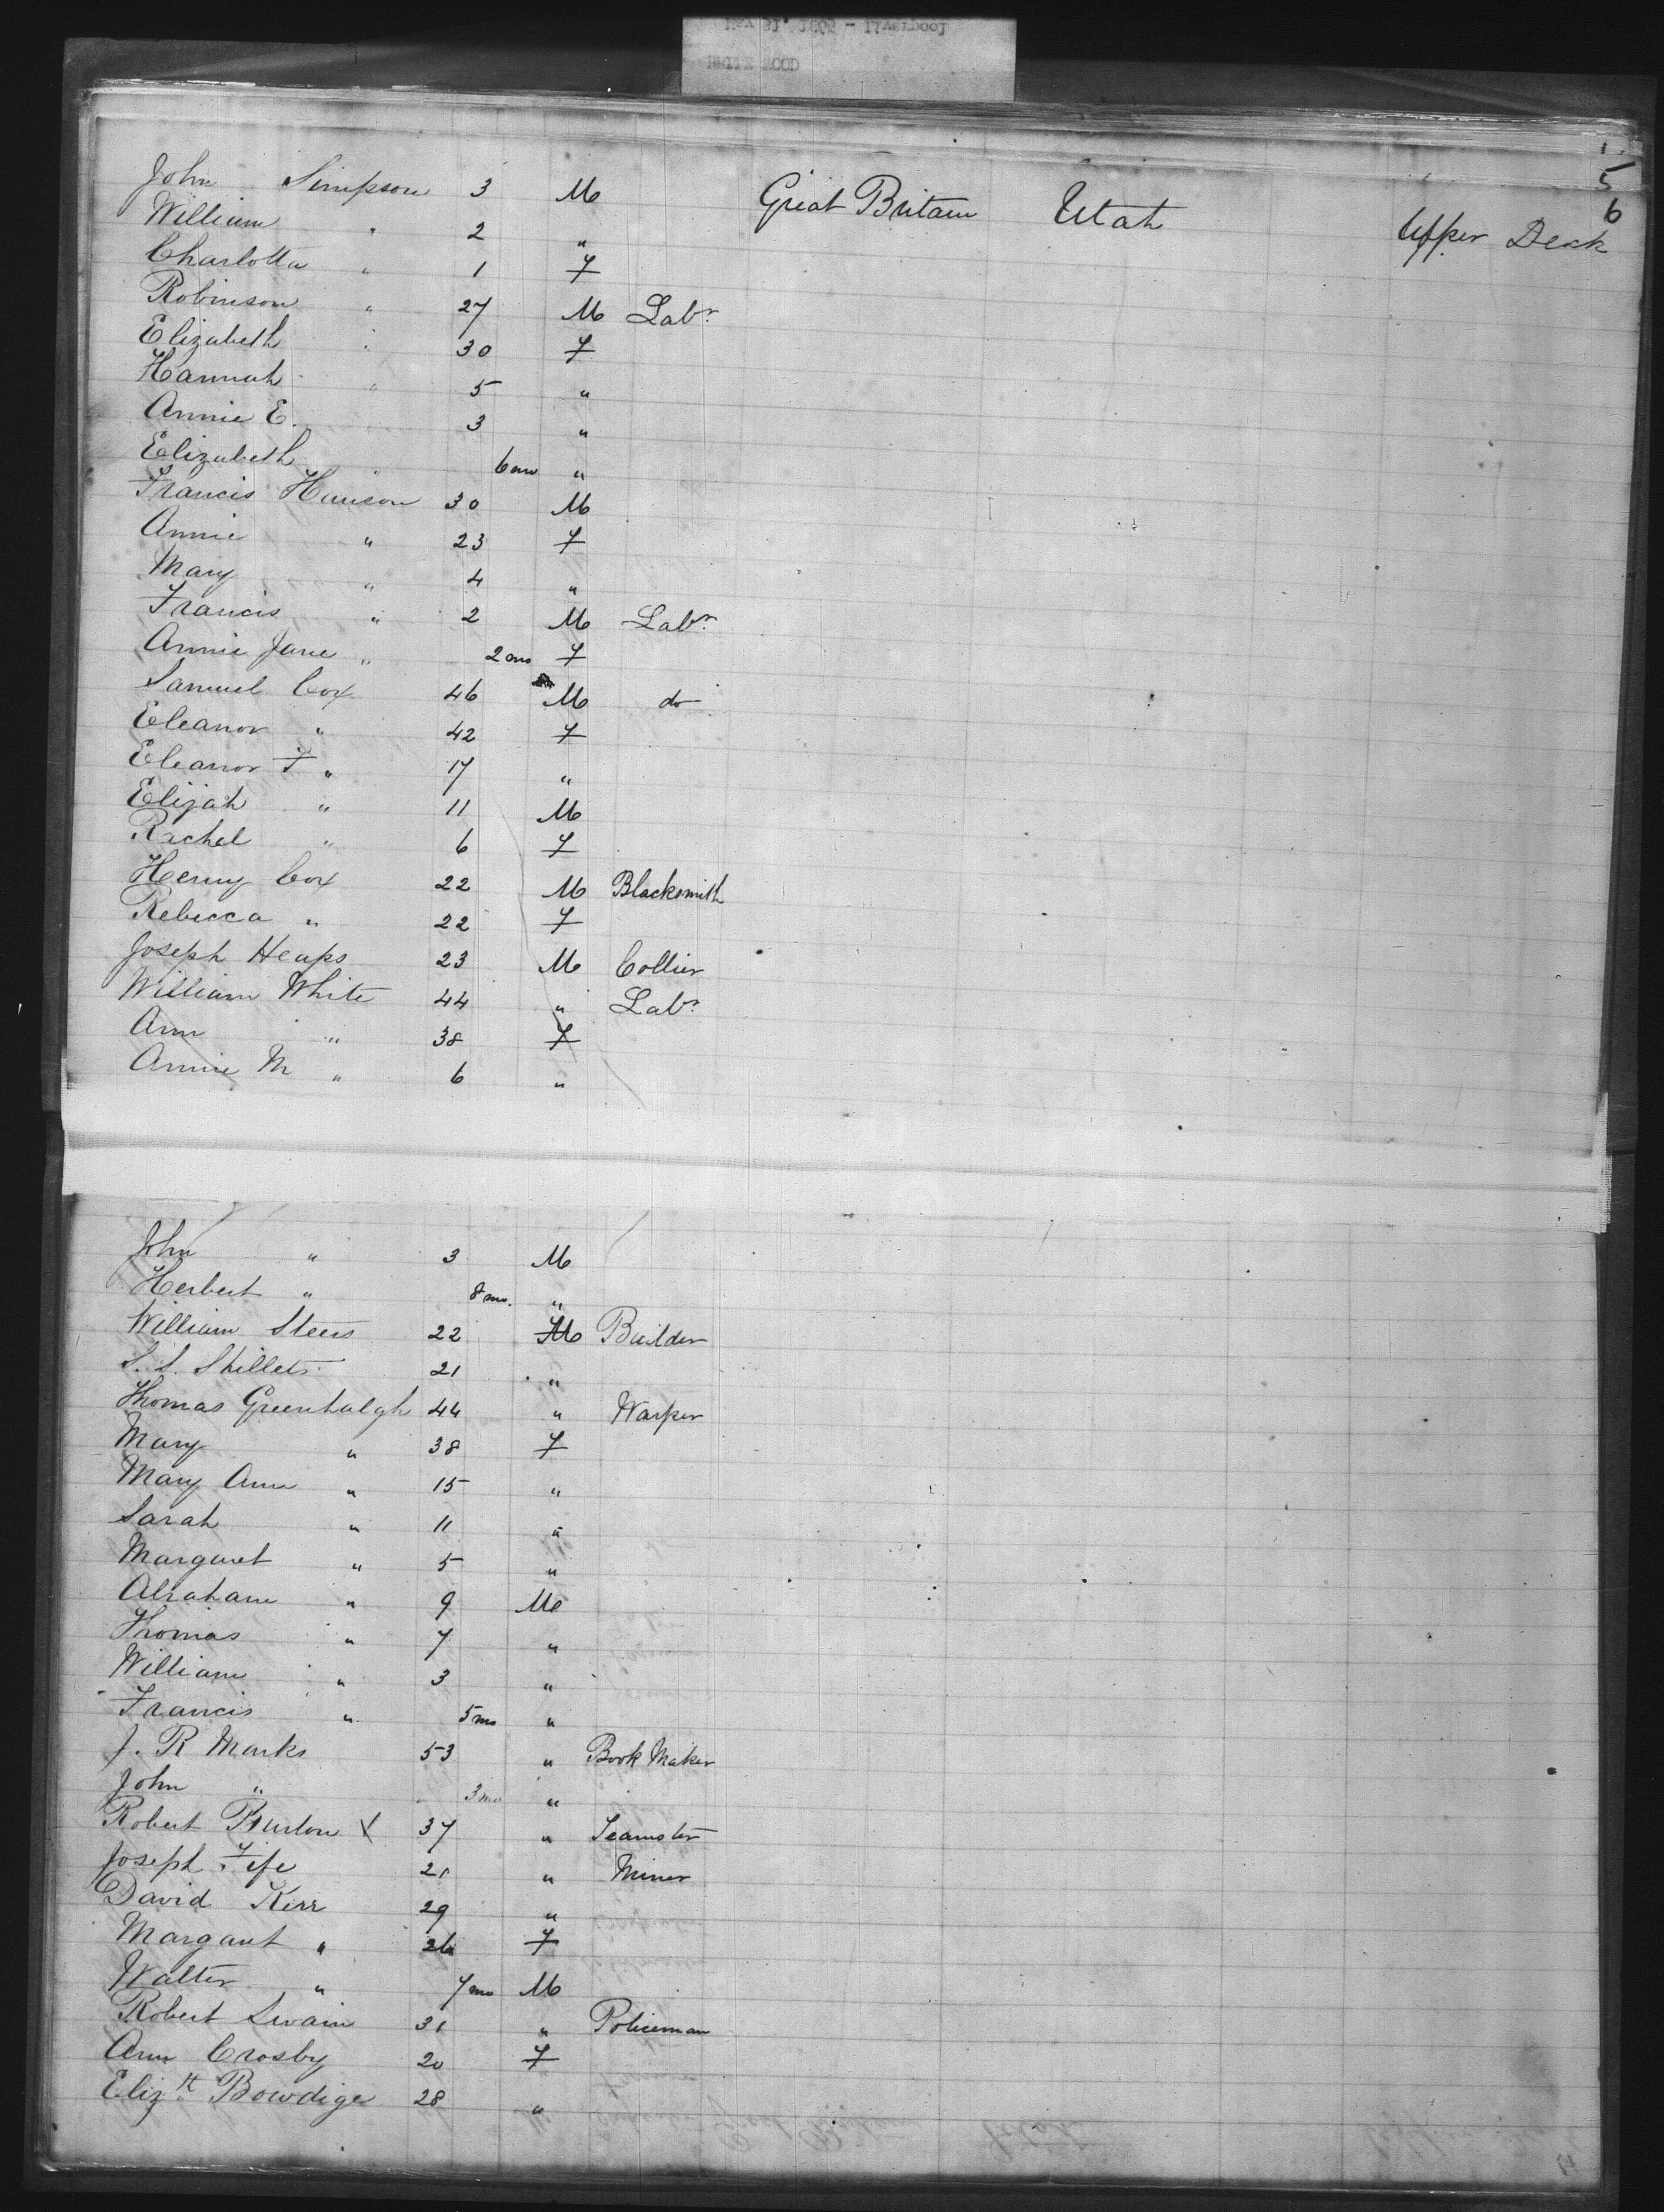 May 31, 1866 - Liverpool
1
5
6
John Simpson 3 M Great Britain Utah Upper Deck
William " 2 "
Charlotta " 1 F
Robinson " 27 M Labr
Elizabeth " 30 F
Hannah " 5 "
Annie E. " 3 "
Elizabeth " 6 mo "
Francis Hunson 30 M
Annie " 23 F
Mary " 4 "
Francis " 2 M Labr
Annie Jane " 2 mo F
Samuel Cox 46 M do
Eleanor " 42 F
Eleanor F " 17 "
Elijah " 11 M
Rachel " 6 F
Henry Cox 22 M Blacksmith
Rebecca " 22 F
Joseph Heaps 23 M Collier
William White 44 " Labr
Ann " 38 F
Annie M " 6 "
John " 3 M
Herbert " 8 mo. "
William Steers 22 M Builder
S. S. Skillets 21 "
Thomas Greenhalgh 44 " Warper
Mary " 38 F
Mary Ann " 15 "
Sarah " 11 "
Margaret " 5 "
Abraham " 9 M
Thomas " 7 "
William " 3 "
Francis " 5 mo "
J. R Marks 53 " Book Maker
John " 3 mo "
Robert Burton X 37 " Teamster
Joseph Fife 21 " Miner
David Kerr 29 "
Margaret " 26 F
Walter " 7 mo M
Robert Swain 31 " Policeman
Ann Crosby 20 F
Elizth Bowdige 28 "